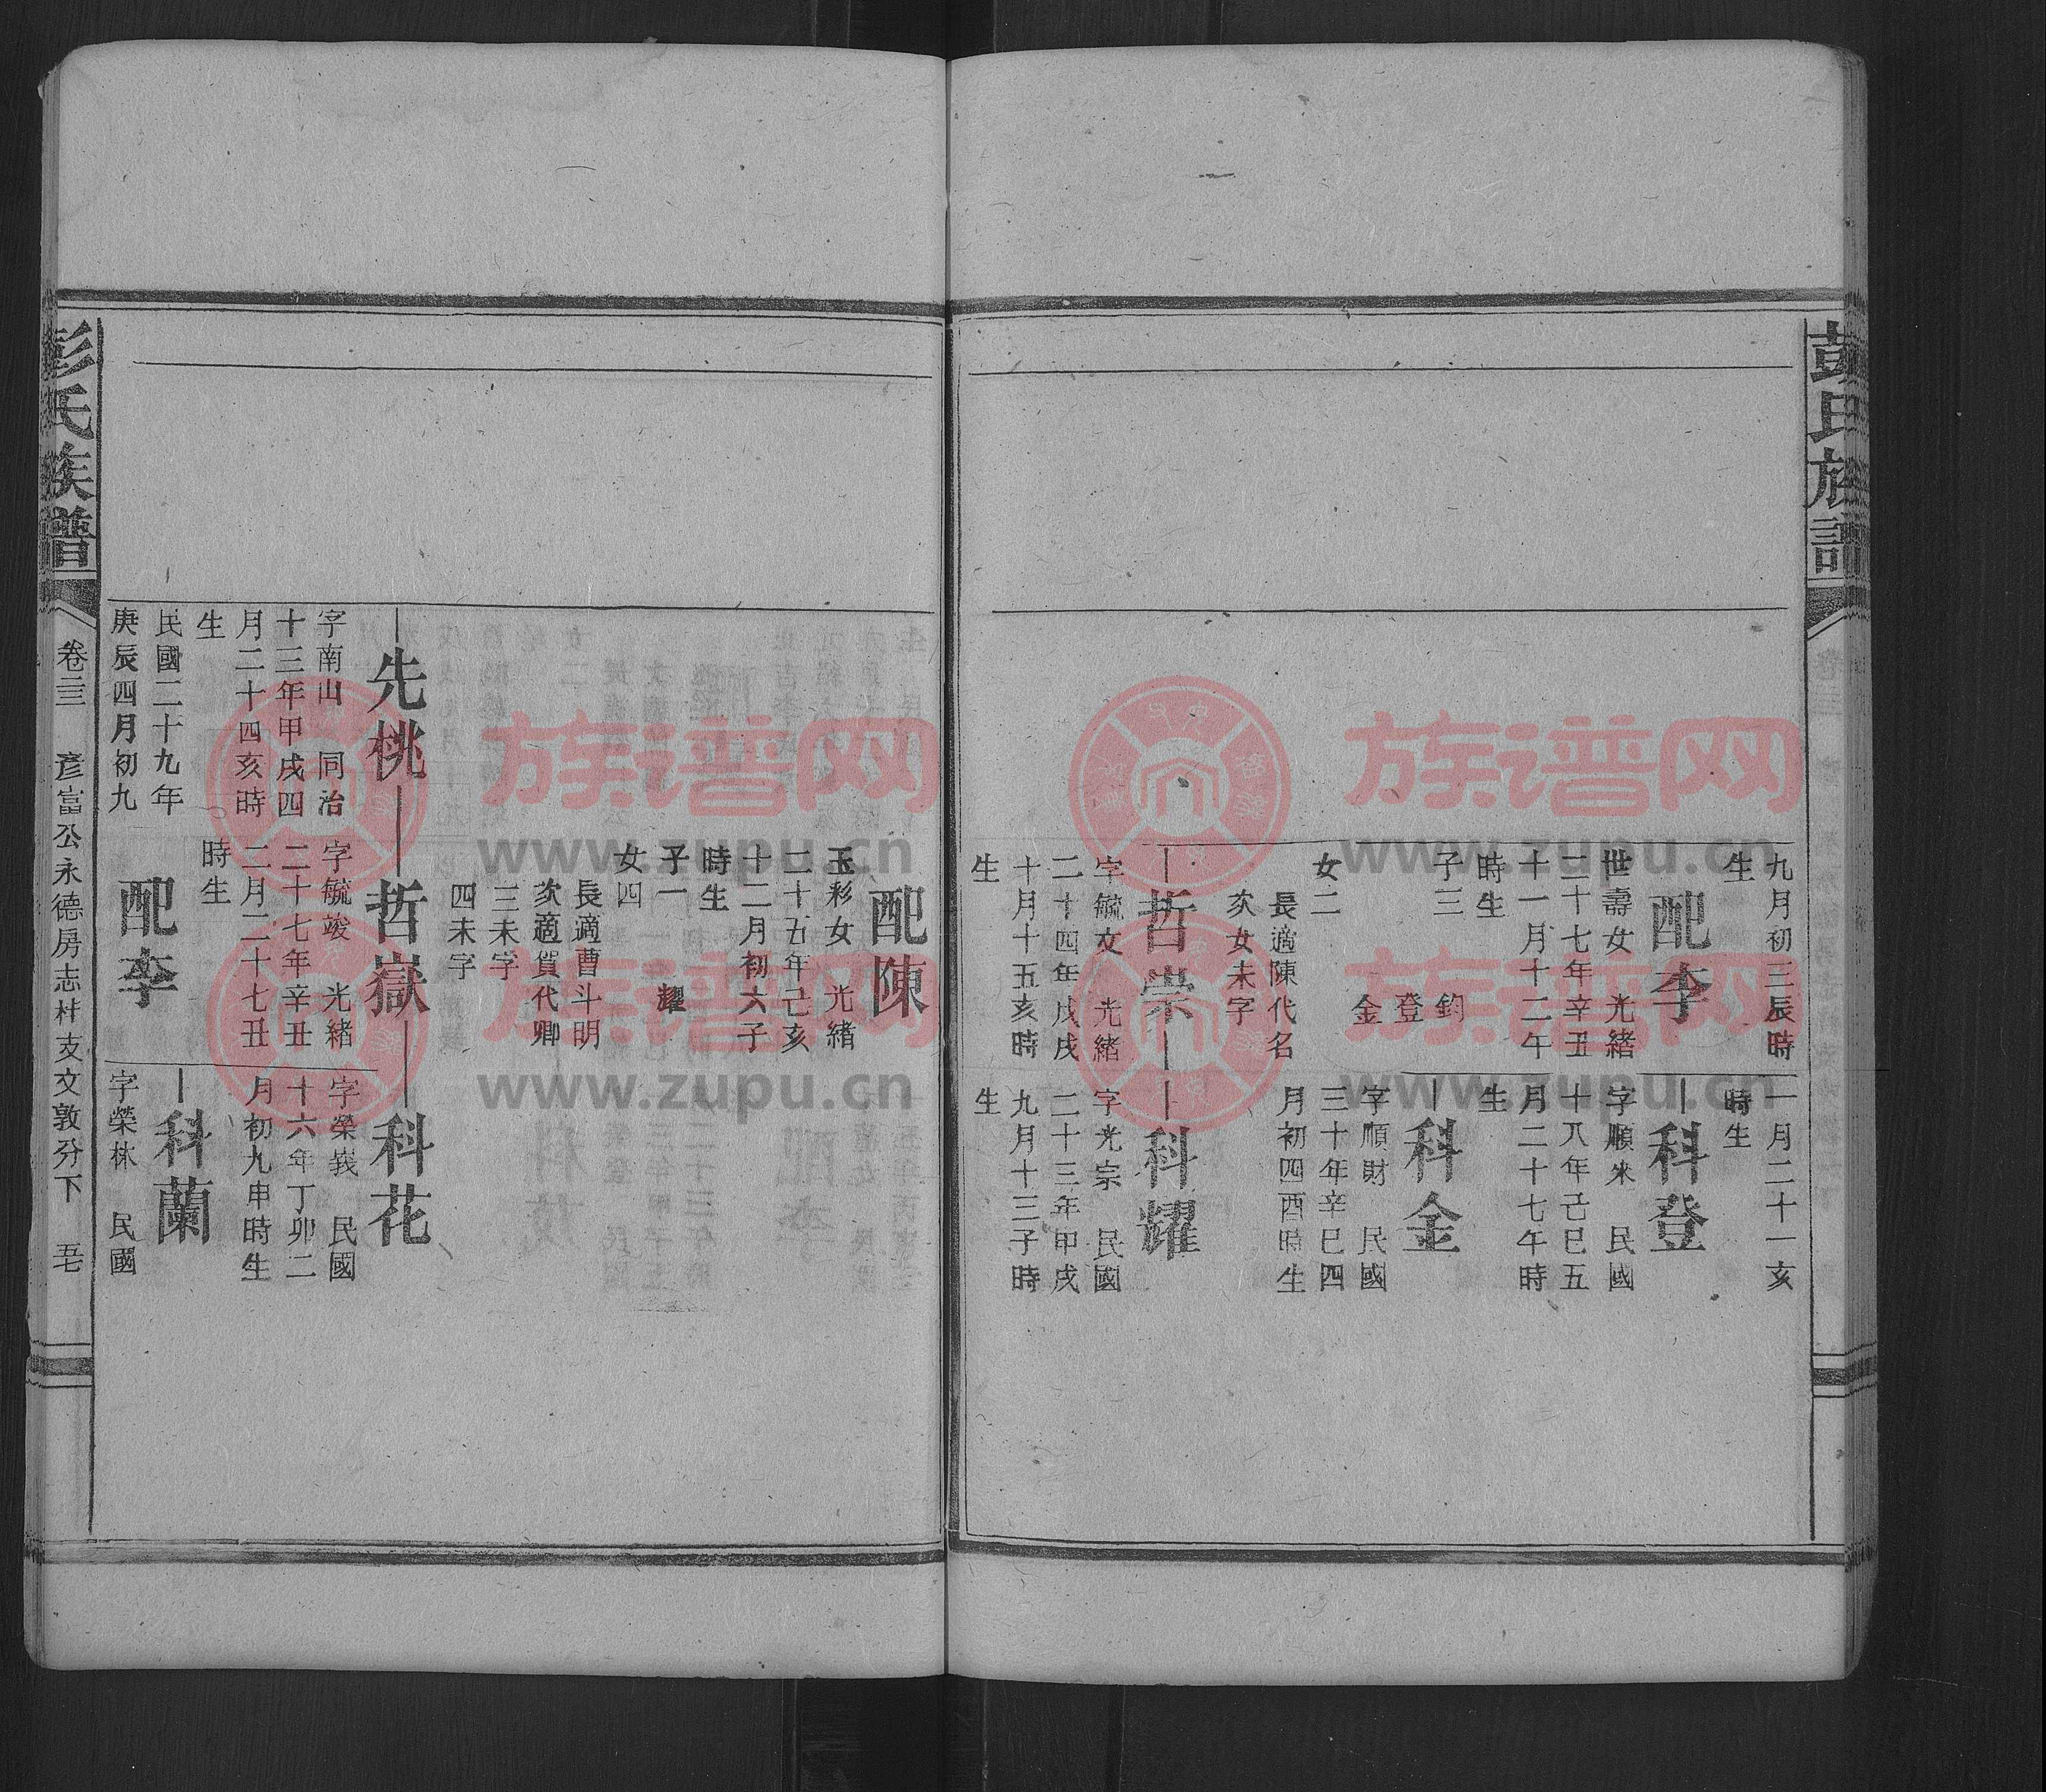 彭氏族譜
九月初三辰時
生
配李
世壽女　光緒
二十七年辛丑
十一月十二午
時生
子三
鈞
登
金
女二
長適陳代名
次女未字
哲崇
字毓文　光緒
二十四年戊戌
十月十五亥時
生
一月二十一亥
時生
科登
字順來　民國
十八年己巳五
月二十七午時
生
科金
字順財　民國
三十年辛巳四
月初四酉時生
科耀
字光宗　民國
二十三年甲戌
九月十三子時
生
配陳
玉彩女　光緒
二十五年己亥
十二月初六子
時生
子一　耀
女四
長適曹斗明
次適賀代卿
三未字
四未字
先桃
字南山　同治
十三年甲戌四
月二十四亥時
生
民國二十九年
庚辰四月初九
哲嶽
字毓竣　光緒
二十七年辛丑
二月二十七丑
時生
配李
科花
字榮莪　民國
十六年丁卯二
月初九申時生
科蘭
字榮林　民國
彭氏族譜
卷三　彥富公永德房志村支文敦分下　五七
族谱网
www.zupu.cn
族谱网
www.zupu.cn
族谱网
www.zupu.cn
族谱网
www.zupu.cn